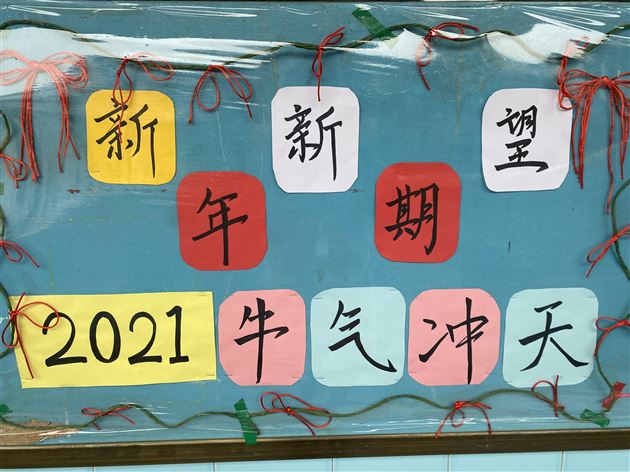 新年新期望
2021牛气冲天